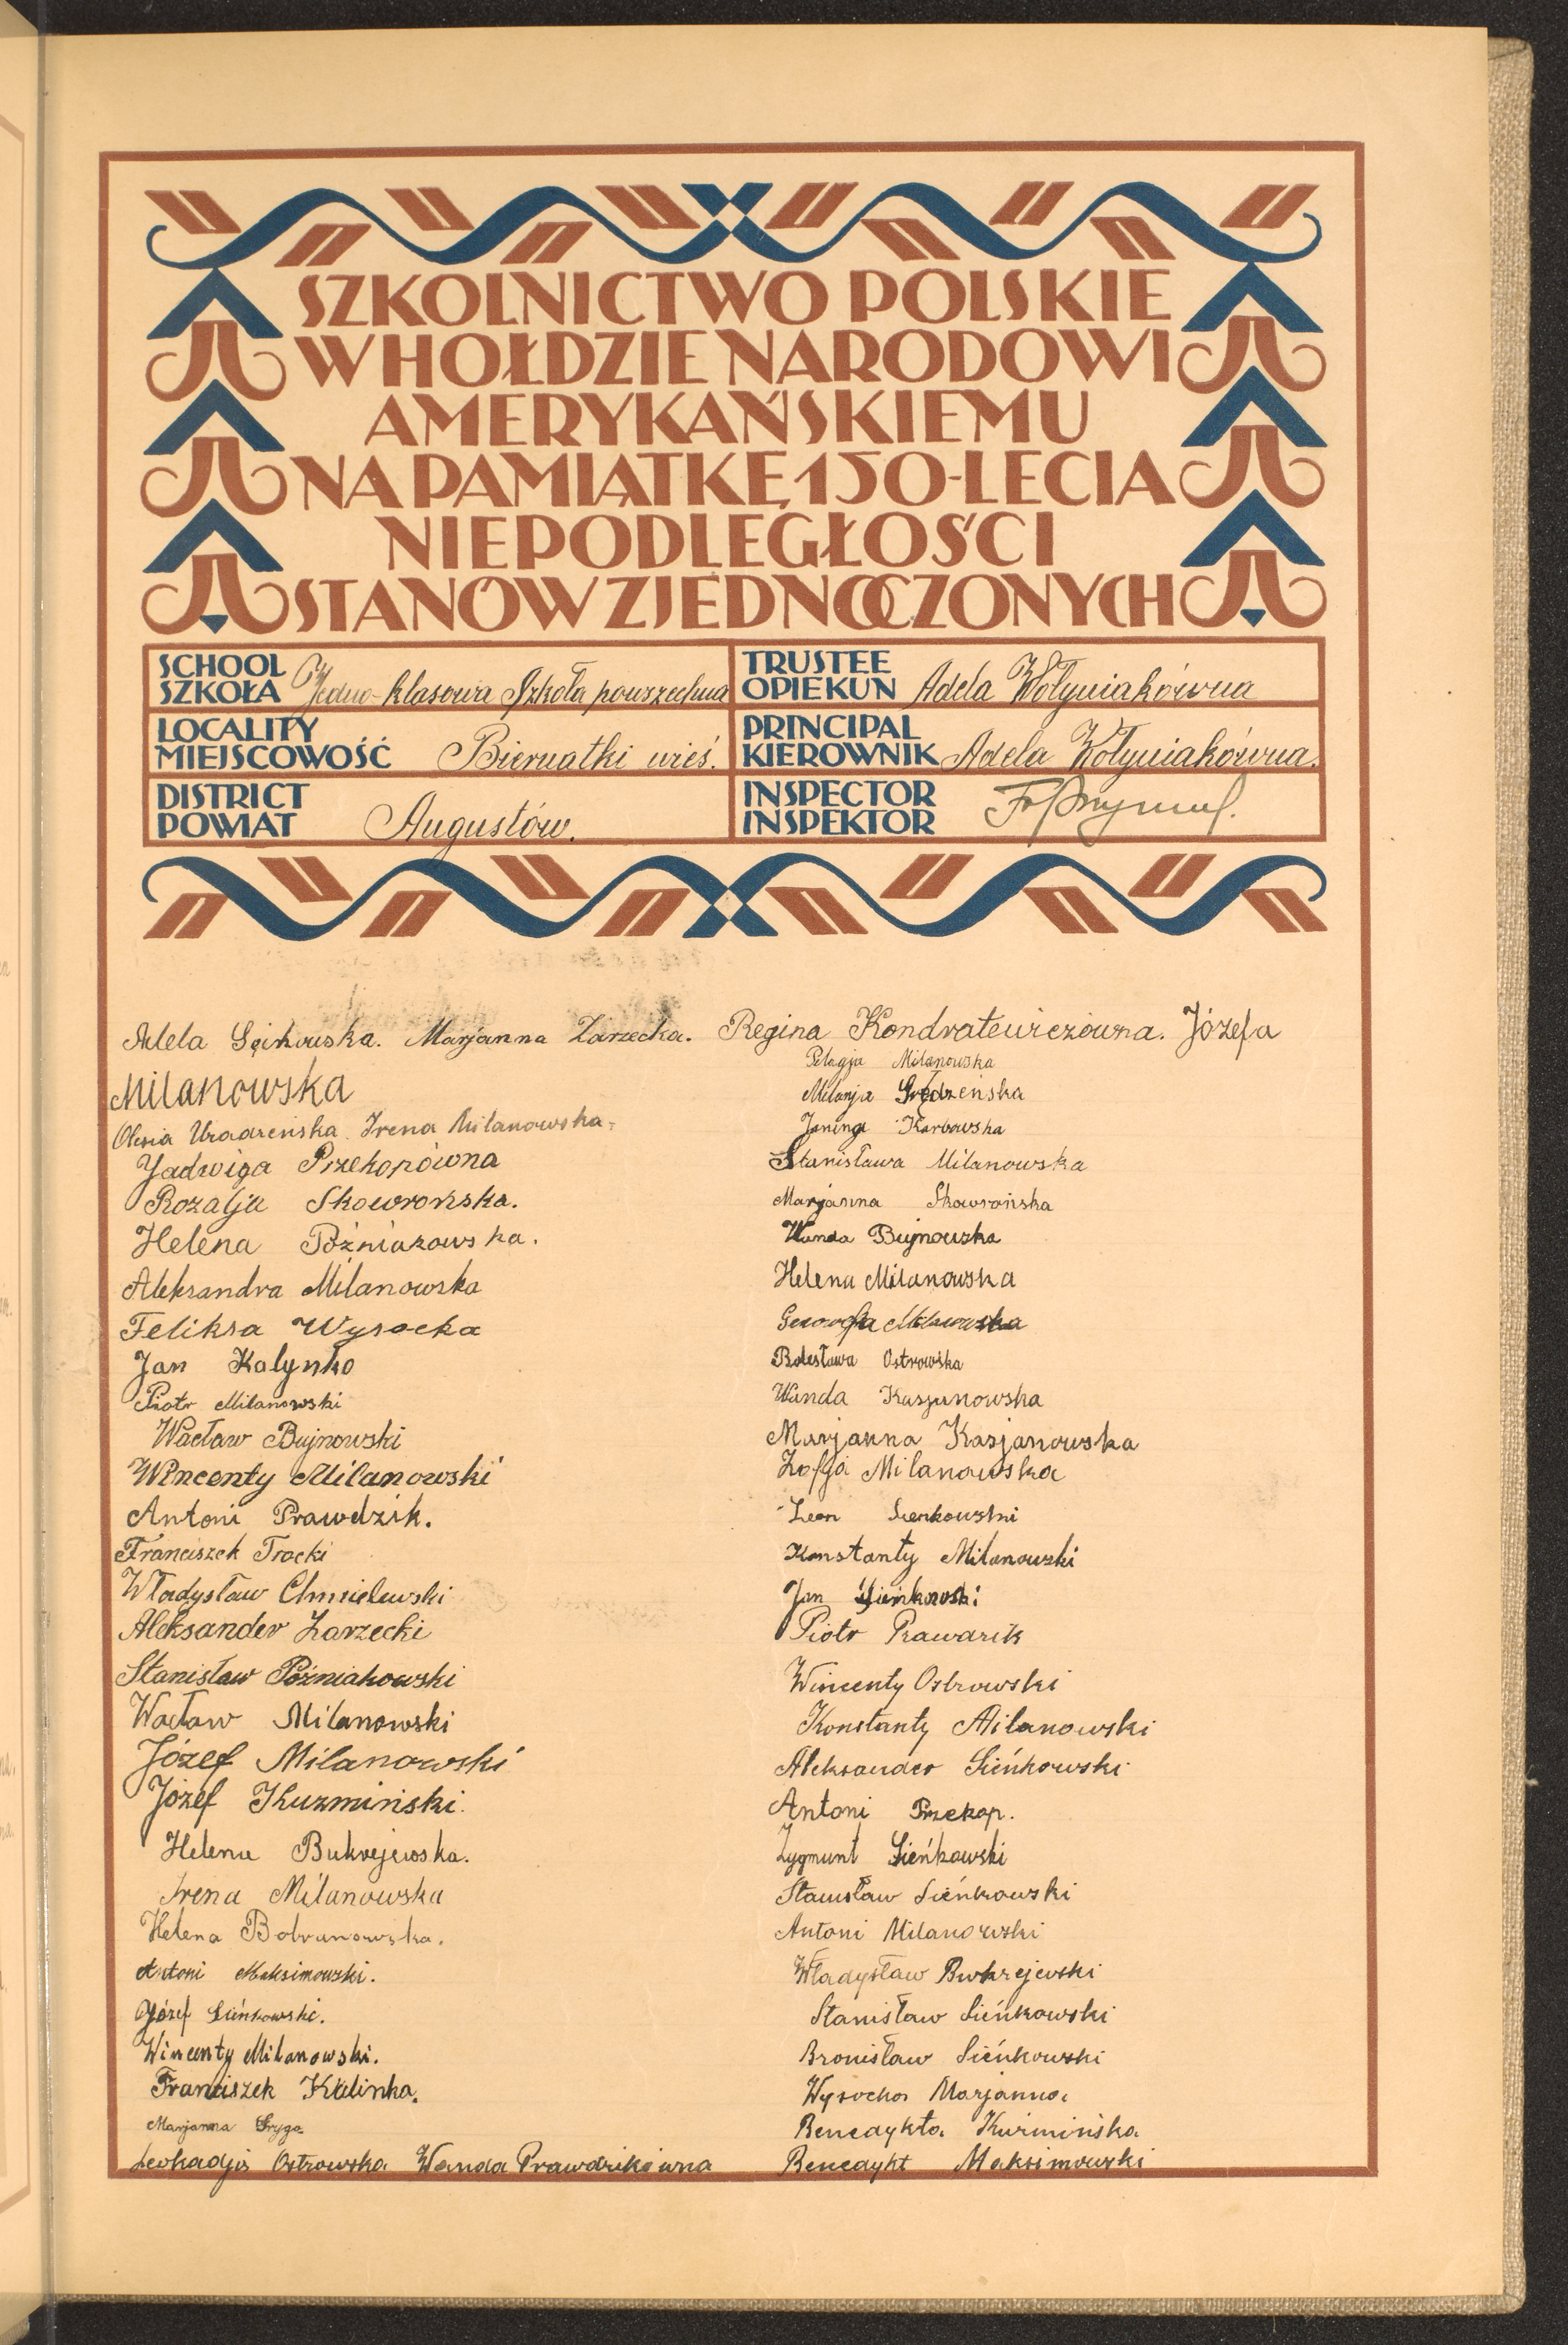 SZKOLNICTWO POLSKIE
W HOŁDZIE NARODOWI
AMERYKAŃSKIEMU
NA PAMIĄTKĘ 150-LECIA
NIEPODLEGŁOŚCI
STANÓW ZJEDNOCZONYCH
SCHOOL
SZKOŁA Jedno-klasowa Szkoła powszechna
TRUSTEE
OPIEKUN Adela Wołyniakówna
LOCALITY
MIEJSCOWOŚĆ Biernatki wieś.
PRINCIPAL
KIEROWNIK Adela Wołyniakówna.
DISTRICT
POWIAT Augustów.
INSPECTOR
INSPEKTOR
Adela Marjanna Zarzecka. Regina Kondratewiczówna. Józefa
Milanowska
Irena Milanowska
Jadwiga Przekopówna
Rozalja Skowrońska.
Helena Poźniakowska.
Aleksandra Milanowska
Feliksa Wysocka
Jan Kalynko
Piotr Milanowski
Wacław Bujnowski
Wincenty Milanowski
Antoni Prawdzik.
Franciszek Trocki
Władysław Chmielewski
Aleksander Zarzecki
Stanisław Poźniakowski
Wacław Milanowski
Józef Milanowski
Józef Kuzmiński.
Helena Bukrejewska.
Irena Milanowska
Helena
Antoni Maksimowski.
Józef Sieńkowski.
Wincenty Milanowski.
Franciszek Kalinka.
Marjanna Gryga.
Leokadja Ostrowska Wanda Prawdzikówna
Pelagja Milanowska
Milanja
Janina Karbowska
Stanisława Milanowska
Marjanna Skowrońska
Wanda Bujnowska
Helena Milanowska
Milanowska
Bolesława Ostrowska
Wanda Kasjanowska
Marjanna Kasjanowska
Zofja Milanowska
Leon Sienkowski
Konstanty Milanowski
Jan Sieńkowski
Piotr Prawdzik
Wincenty Ostrowski
Konstanty Milanowski
Aleksander Sieńkowski
Antoni Przekop.
Zygmunt Sieńkowski
Stanisław Sieńkowski
Antoni Milanowski
Władysław Bukrejewski
Stanisław Sieńkowski
Bronisław Sieńkowski
Wysocka Marjanna
Benedykta Kuzmińska
Benedykt Maksimowski